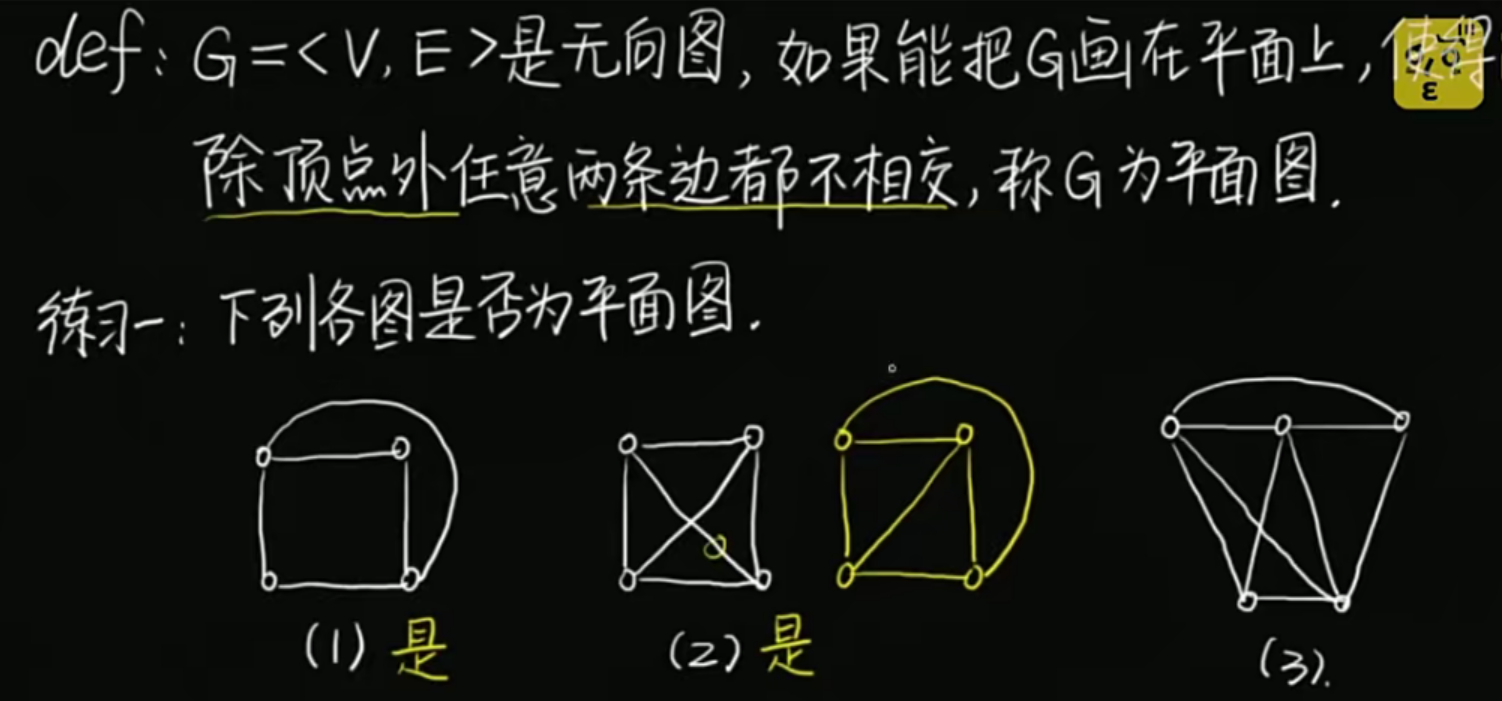 def: G=<V,E>是无向图,如果能把G画在平面上,使得
除顶点外任意两条边都不相交,称G为平面图.
练习一:下列各图是否为平面图.
(1) 是 (2) 是 (3).